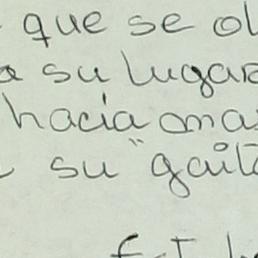 que se ol
a su lugar
hacia oma
su "gaita